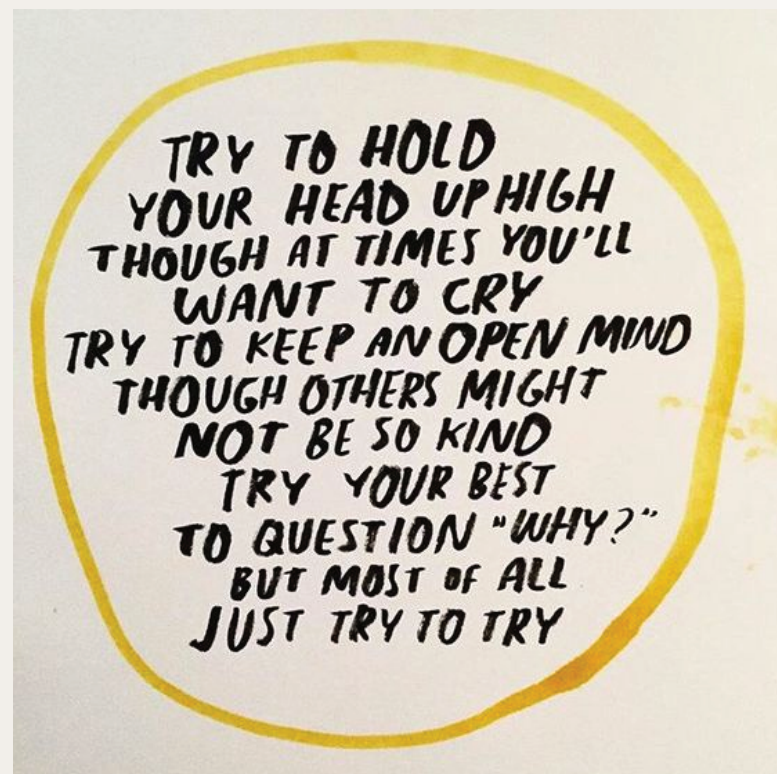 TRY TO HOLD
YOUR HEAD UP HIGH
THOUGH AT TIMES YOU'LL
WANT TO CRY
TRY TO KEEP AN OPEN MIND
THOUGH OTHERS MIGHT
NOT BE SO KIND
TRY YOUR BEST
TO QUESTION "WHY?"
BUT MOST OF ALL
JUST TRY TO TRY